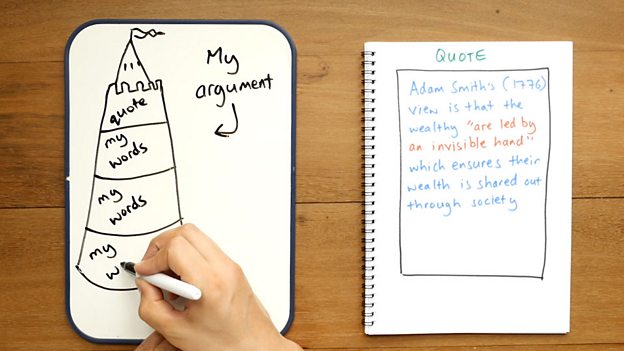 My
argument
quote
my
words
my
words
my
w
QUOTE
Adam Smith's (1776)
view is that the
wealthy "are led by
an invisible hand"
which ensures their
wealth is shared out
through society